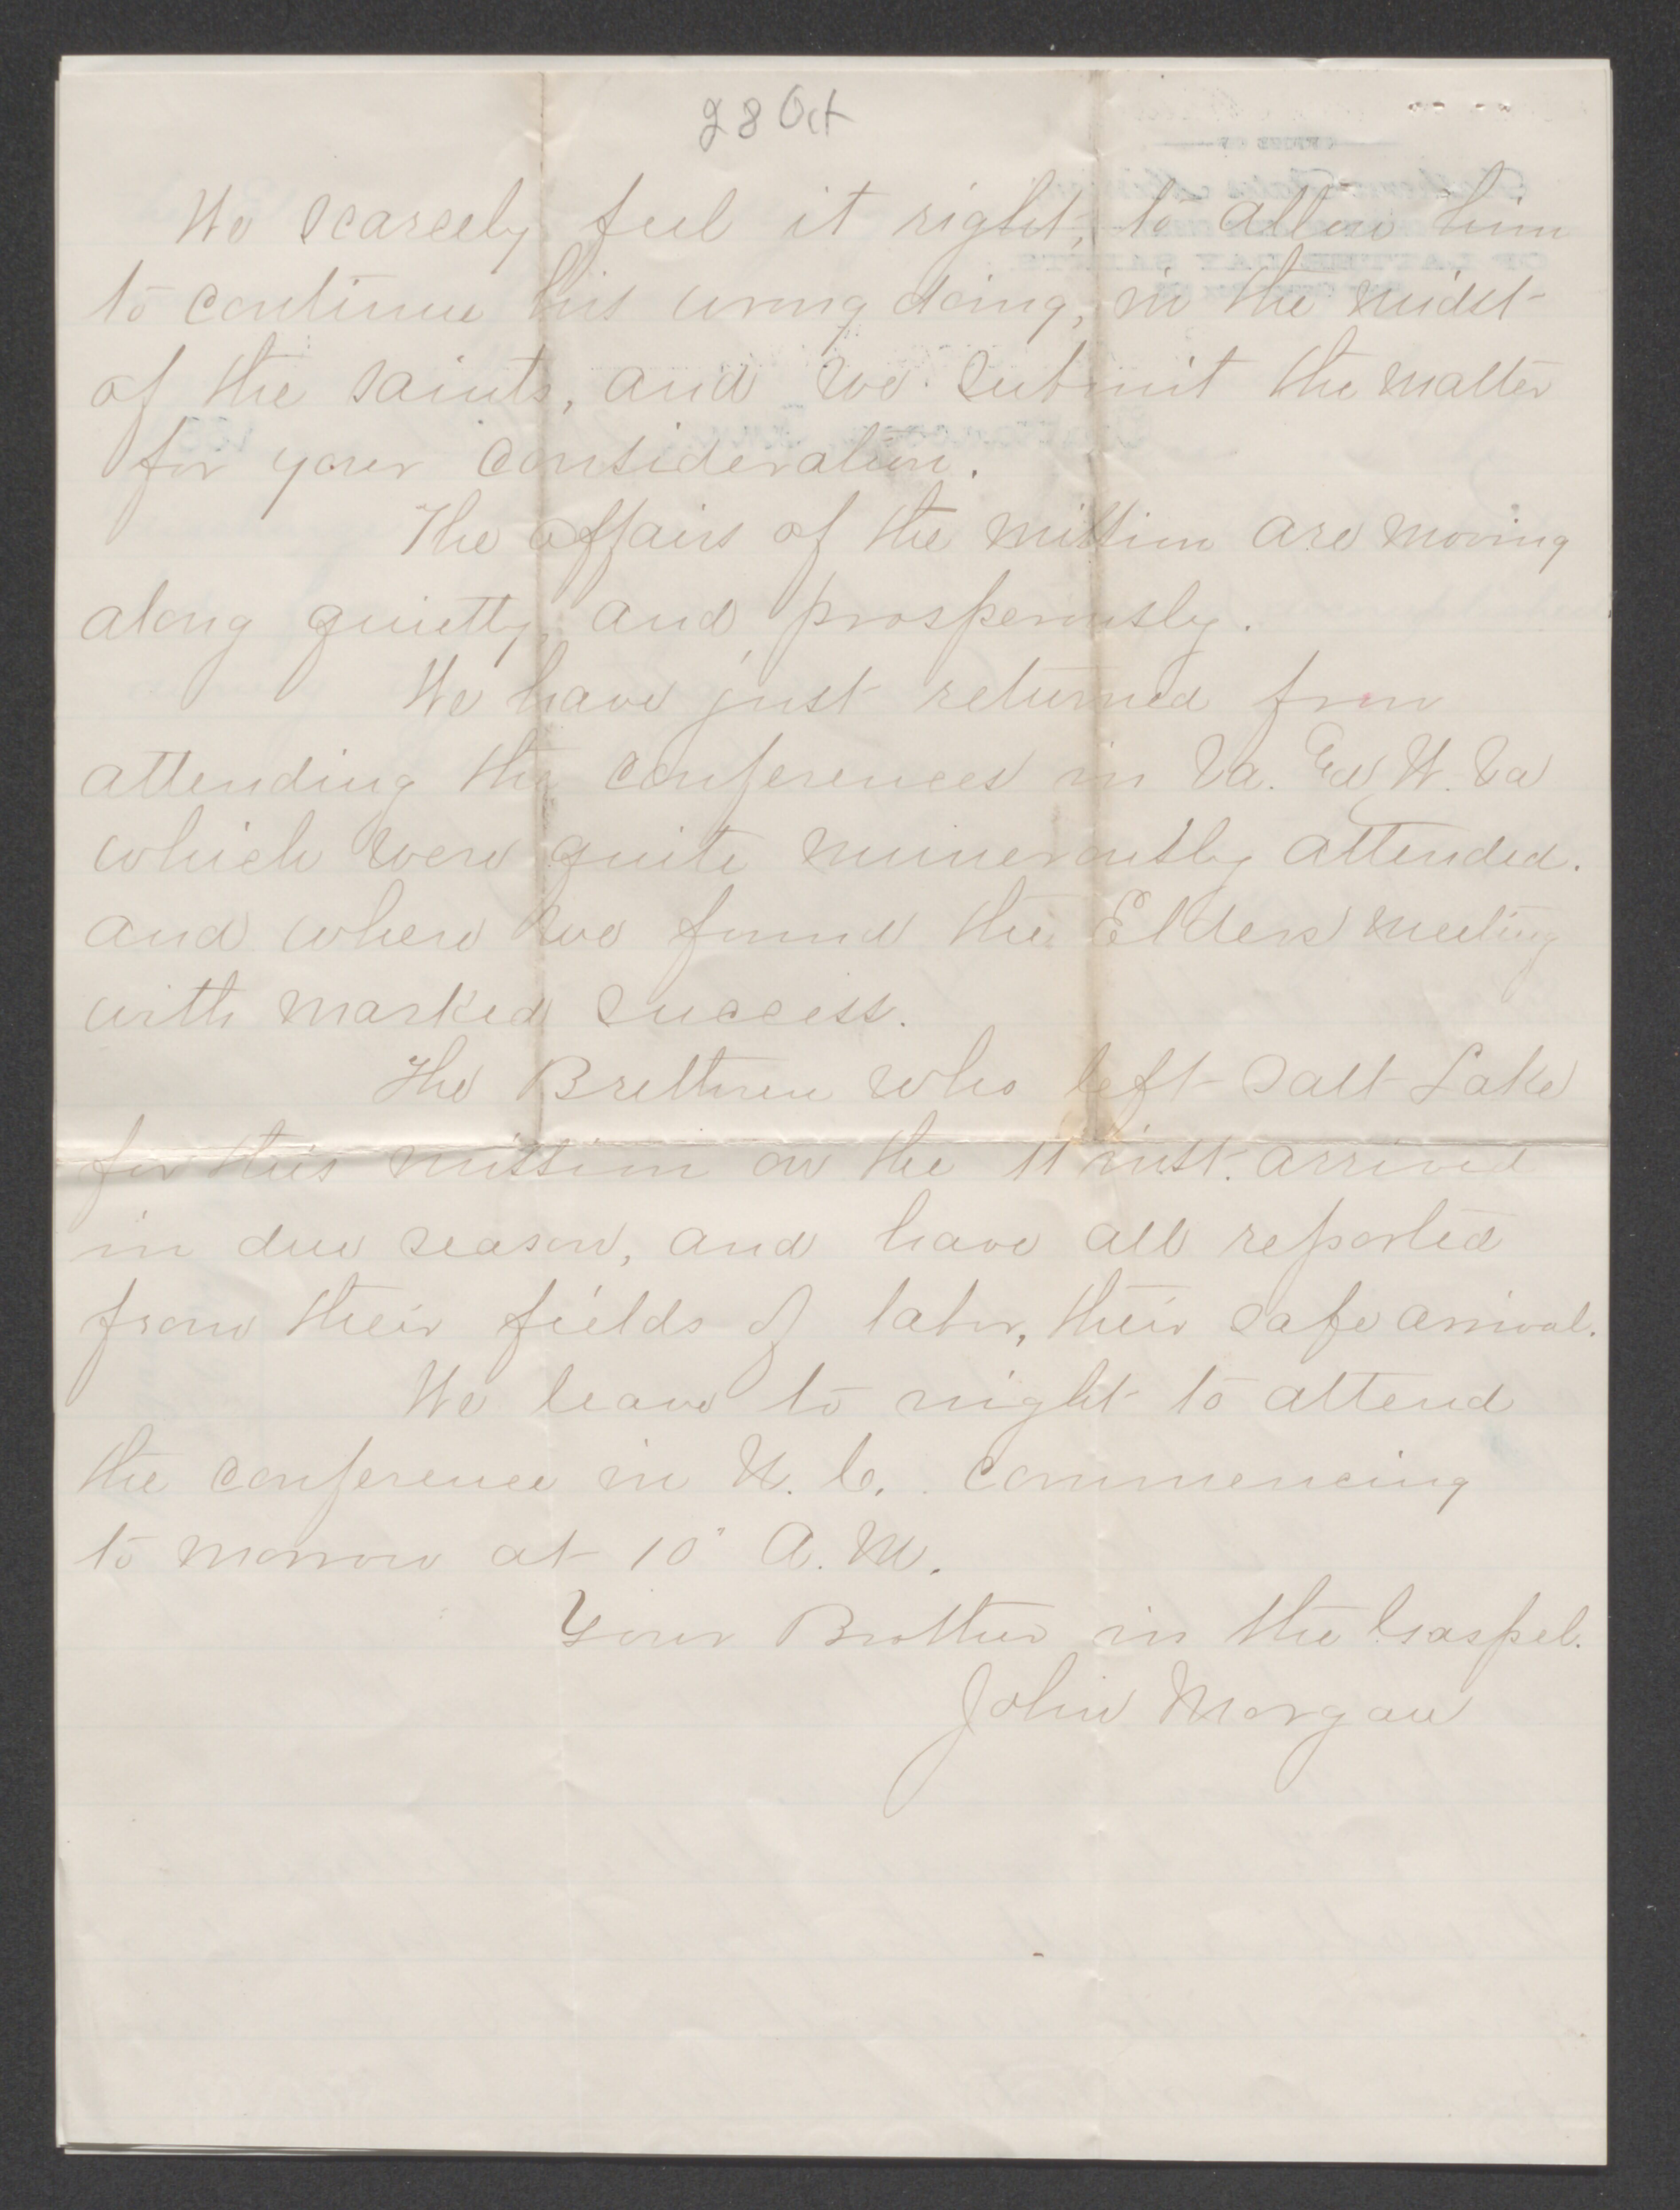 28 Oct
We scarcely feel it right, to allow him
to continue his wrong doing, in the midst
of the saints, and we submit the matter
for your consideration.
The affairs of the mission are moving
along quietly and prosperously.
We have just returned from
attending the conferences in Va. W. Va
which were quite numerously attended.
and where we found the Elders meeting
with marked success.
The Brethren who left Salt Lake
for this mission on the 11 inst. arrived
in due season, and have all reported
from their fields of labor, their safe arrival.
We leave to night to attend
the conference in N. C. commencing
to morrow at 10 A. M.
Your Brother in the Gospel.
John Morgan